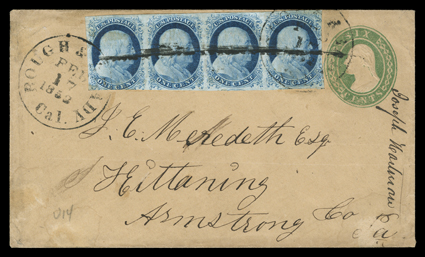 ROUGH & READY
FEB
17
1855
Cal.
U.S. POSTAGE U.S. POSTAGE U.S. POSTAGE U.S. POSTAGE
ONE CENT. ONE CENT. ONE CENT. ONE CENT.
SIX
CENTS
S. E. Meredeth Esq.
Kittaning
Armstrong Co
Pa.
Joseph
014